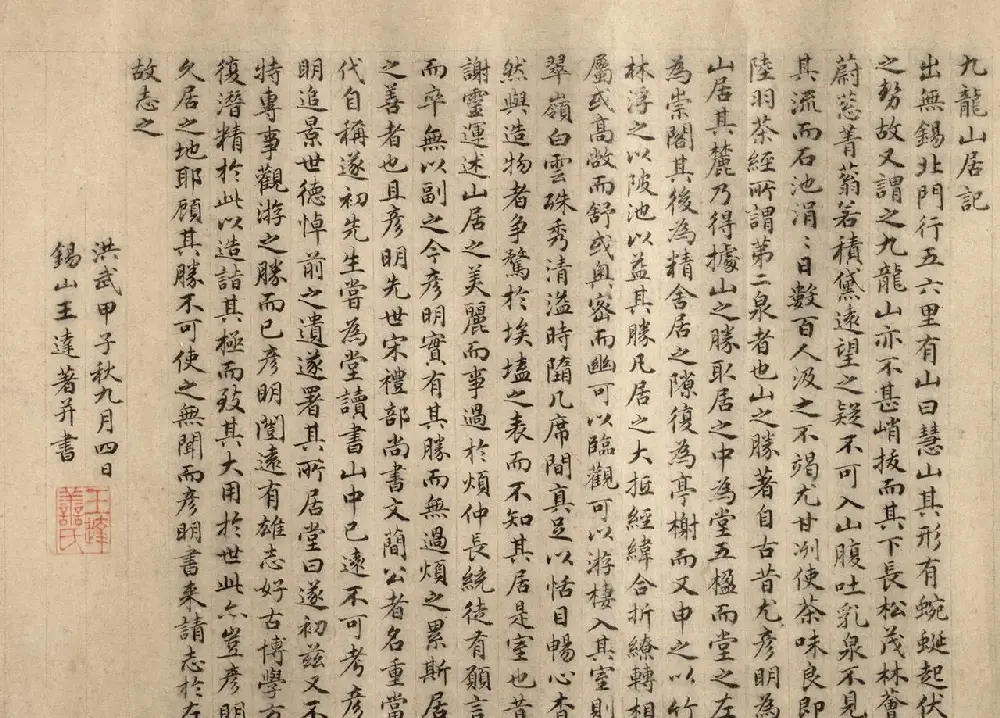 九龍山居記
出無錫北門行五六里有山曰慧山其形有蜿蜒起伏
之勢故又謂之九龍山亦不甚峭拔而其下長松茂林薈
蔚葱菁蓊若積黛遠望之疑不可入山腹吐乳泉不見
其流而石池涓〻日數百人汲之不竭尤甘冽使茶味良即
陸羽茶經所謂第二泉者也山之勝著自古昔尤彥明為
山居其麓乃得據山之勝取居之中為堂五楹而堂之左
為崇閣其後為精舍居之隙復為亭榭而又申之以竹
林浮之以陂池以益其勝凡居之大抵經緯合折繚轉相
屬或高敞而舒或奥密而幽可以臨觀可以游棲入其室則
翠嶺白雲殊秀清溢時隨几席間真足以恬目暢心杳
然與造物者争驁於埃壒之表而不知其居是室也昔
謝靈運述山居之美麗而事過於煩仲長統徒有願言
而卒無以副之今彥明實有其勝而無過煩之累斯居
之善者也且彥明先世宋禮部尚書文簡公者名重當
代自稱遂初先生嘗為堂讀書山中已遠不可考彥
明追景世德悼前之遺遂署其所居堂曰遂初兹又不
特專事觀游之勝而已彥明閎遠有雄志好古博學方
復潛精於此以造詣其極而致其大用於世此亦豈彥明
久居之地耶顧其勝不可使之無聞而彥明書来請志於左
故志之
洪武甲子秋九月四日
錫山王達著并書
王達
善氏